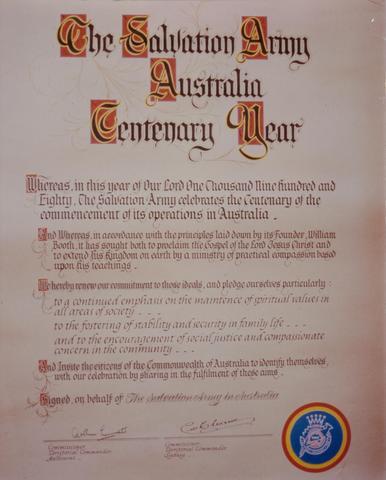 The Salvation Army
Australia
Centenary Year
Whereas, in this year of Our Lord One Thousand Nine hundred and
Eighty, The Salvation Army celebrates the Centenary of the
commencement of its operations in Australia _
And Whereas, in accordance with the principles laid down by its Founder, William
Booth, it has sought both to proclaim the Gospel of the Lord Jesus Christ and
to extend his Kingdom on earth by a ministry of practical compassion based
upon his teachings _
We hereby renew our commitment to those ideals, and pledge ourselves particularly :
to a continued emphasis on the maintence of spiritual values in
all areas of society _ _ _
to the fostering of stability and security in family life _ _ _
and to the encouragement of social justice and compassionate
concern in the community _ _ _
And Invite the citizens of the Commonwealth of Australia to identify themselves,
with our celebration by sharing in the fulfilment of these aims _
Signed, on behalf of The Salvation Army in Australia
Commissioner Commissioner
Territorial Commander Territorial Commander
Melbourne _ Sydney _